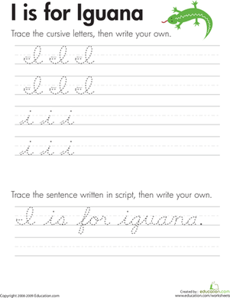 I is for Iguana
Trace the cursive letters, then write your own.
I I I
I I I
i i i
i i i
Trace the sentence written in script, then write your own.
I is for iguana.
Created by
education.com
www.education.com/worksheets